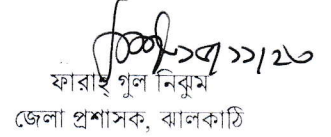 ১৫/১১/২৩
ফারাহ্ গুল নিঝুম
জেলা প্রশাসক, ঝালকাঠি